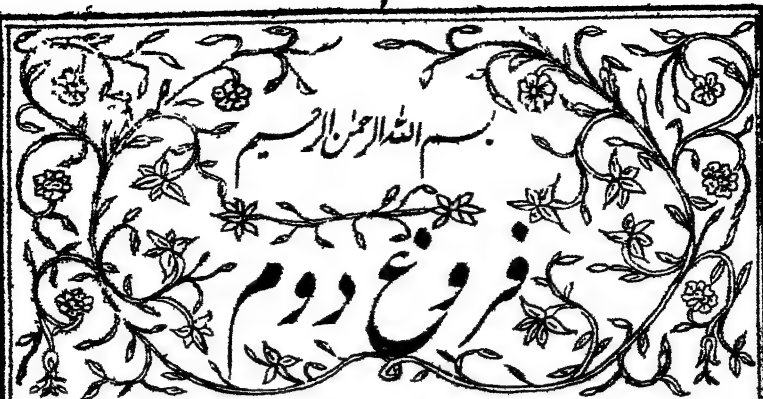 بسم اللہ الرحمٰن الرحیم
فروغ دوم